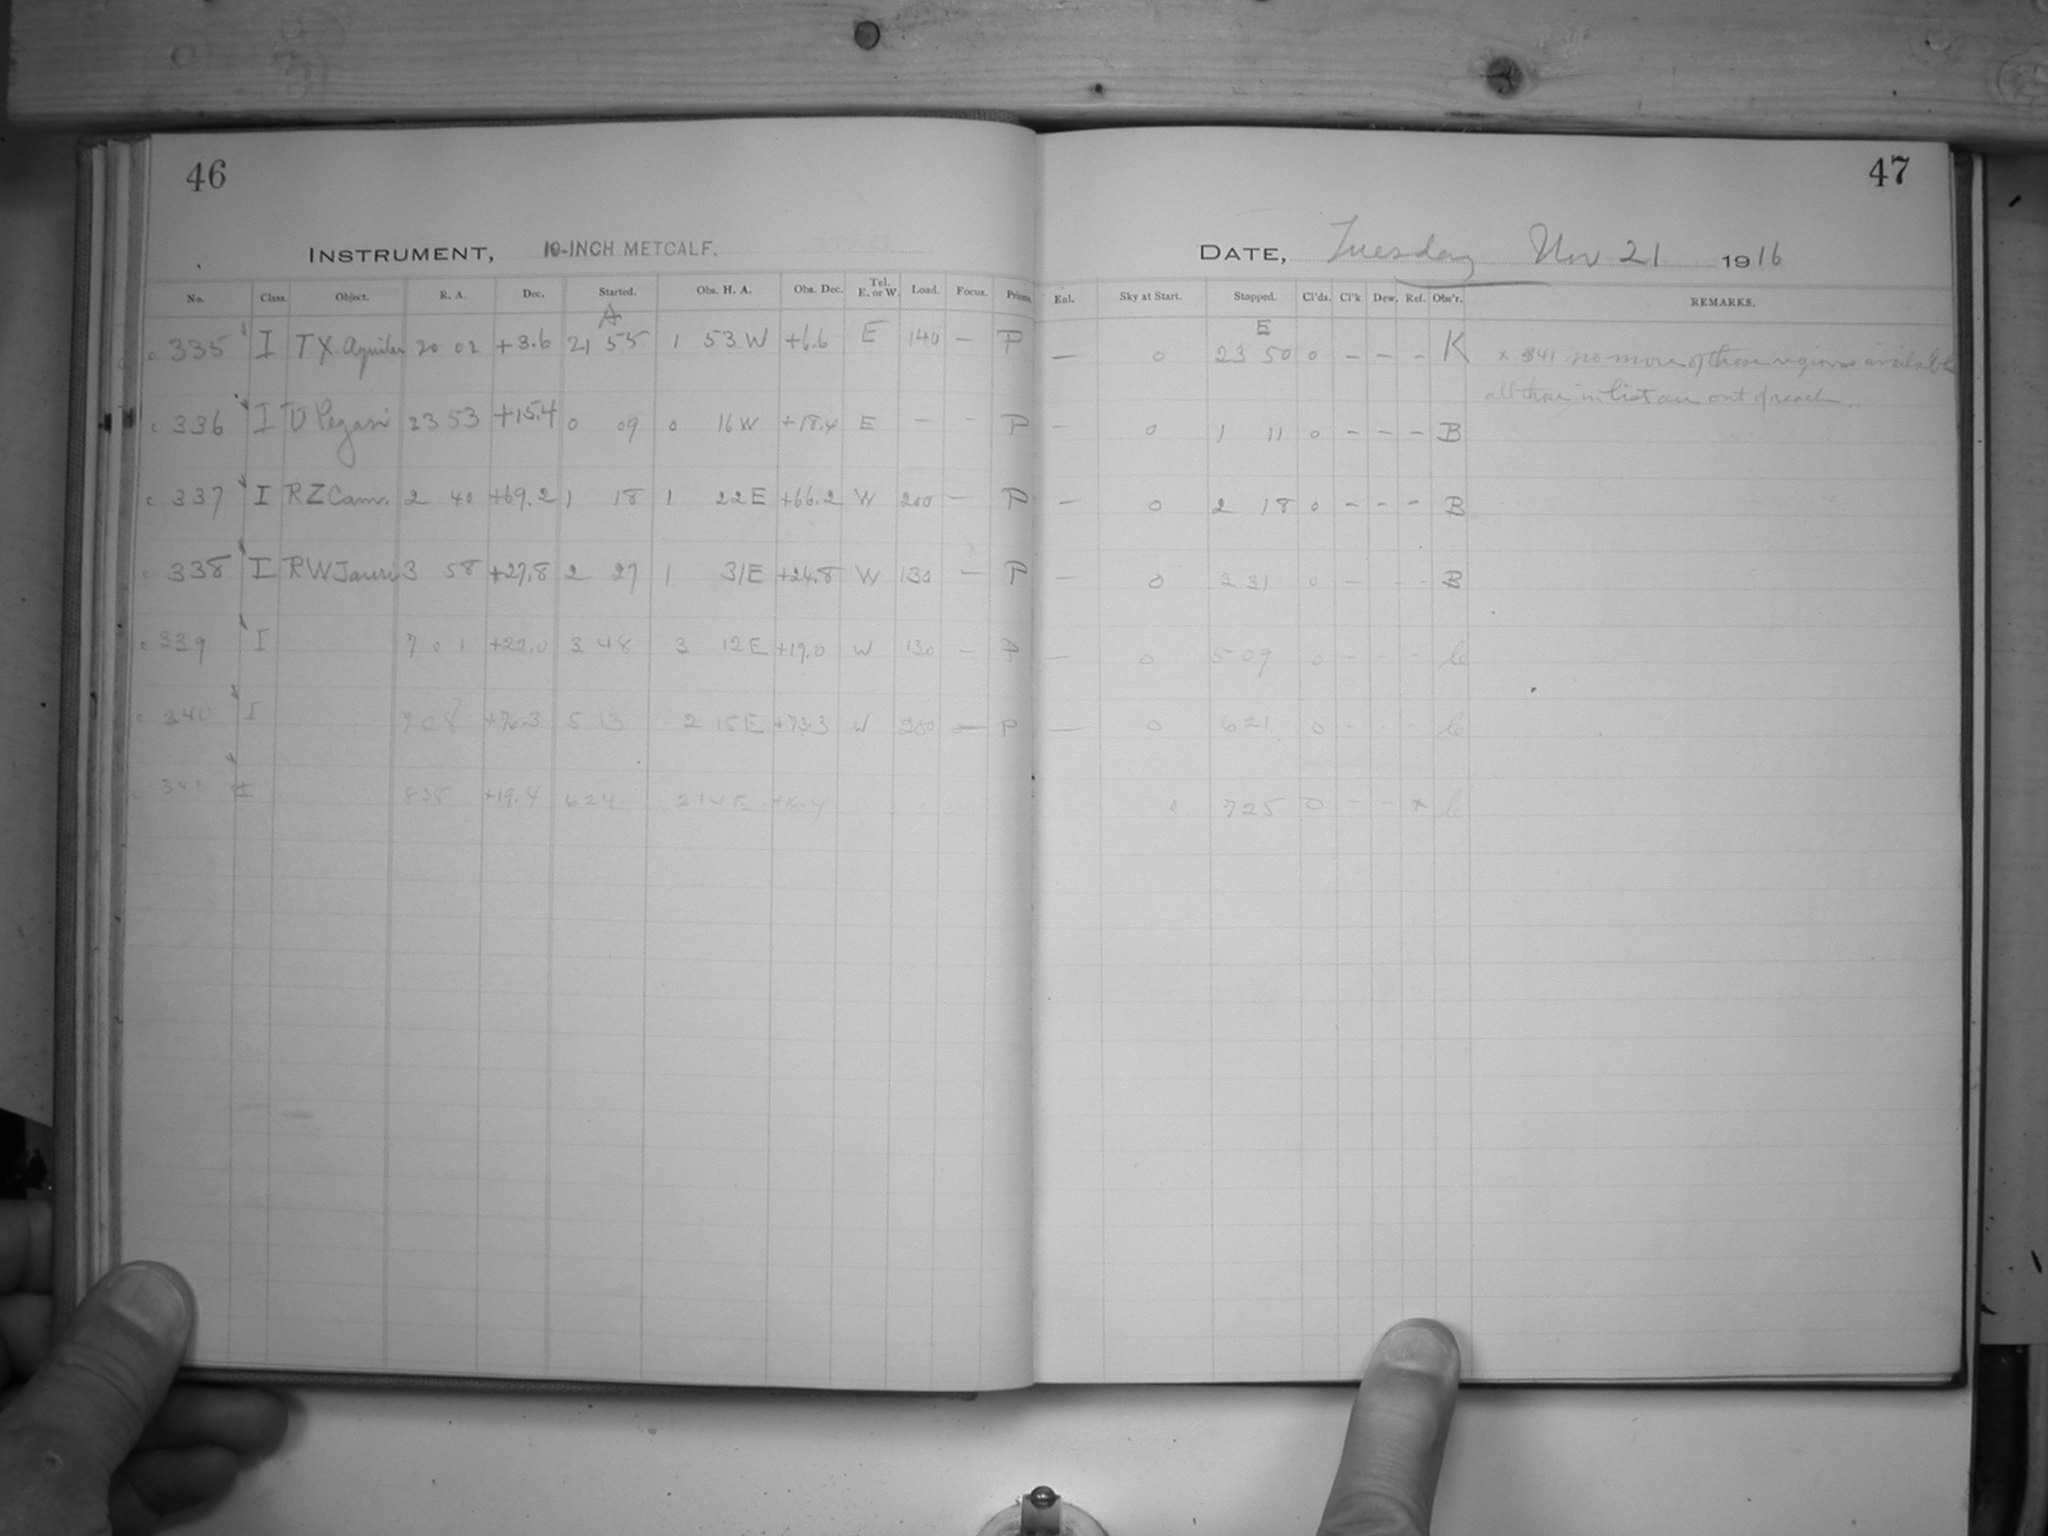 46
47
INSTRUMENT, 10-INCH METCALF.
DATE, Tuesday Nov 21 1916
No. Class. Object. R. A. Dec. Started. Obs. H. A. Obs. Dec. Tel. E. or W. Load. Focus. Prism. Enl. Sky at Start. Stopped. Cl'ds. Cl'k Dew. Ref. Obs'r. REMARKS.
A E
c 335 I TX Aquilae 20 02 +3.6 21 55 1 53 W +6.6 E 140 — P — 0 23 50 0 - - - K x 341 no more of these regions available
all those in list are out of reach
c 336 I U Pegasi 23 53 +15.4 0 09 0 16 W +18.4 E — - P - 0 1 11 0 - - - B
c 337 I RZ Cam. 2 40 +69.2 1 18 1 22 E +66.2 W 200 — P — 0 2 18 0 - - - B
c 338 I RW Tauri 3 58 +27.8 2 27 1 31 E +24.8 W 130 — P — 0 3 31 0 - - - B
c 339 I 7 01 +22.0 3 48 3 12 E +19.0 W 130 - P — 0 5 09 0 - - - C
c 340 I +76.3 5 13 2 15 E +73.3 W 200 — P — 0 6 21 0 - - - C
c 341 I 838 +19.4 6 24 2 14 E +16.4 0 7 25 0 - - x C